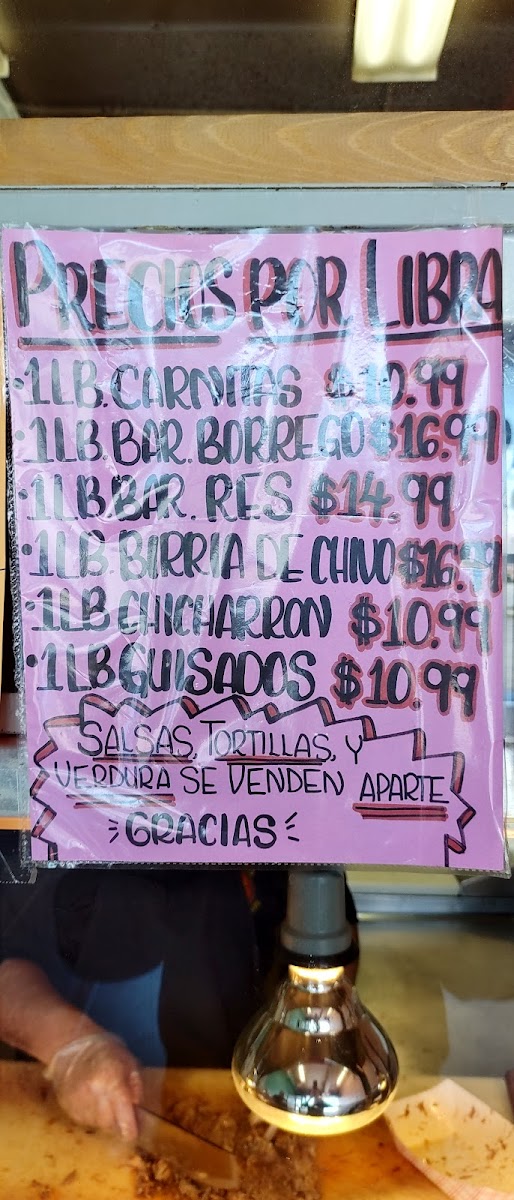 PRECIOS POR LIBRA
• 1LB. CARNITAS $10.99
• 1LB. BAR. BORREGO $16.99
• 1LB BAR. RES $14.99
• 1LB BIRRIA DE CHIVO $16.99
• 1LB CHICHARRON $10.99
• 1LB GUISADOS $10.99
SALSAS, TORTILLAS, Y
VERDURA SE VENDEN APARTE
GRACIAS